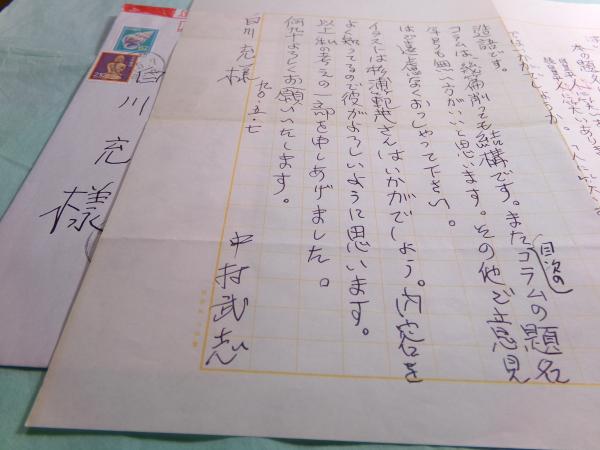 造語です。
コラムは、幾篇削っても結構です。また目次のコラムの題名
も無い方がいいと思います。その他ご意見
はご遠慮なくおっしゃって下さい。
イラストは杉浦範茂さんはいかがでしょう。内容を
よく知ってるので彼がよろしいように思います。
以上私の考えの一部を申しあげました。
何卒よろしくお願いいたします。
九〇・五・七
中村武志
白川 充様
白川 充 様